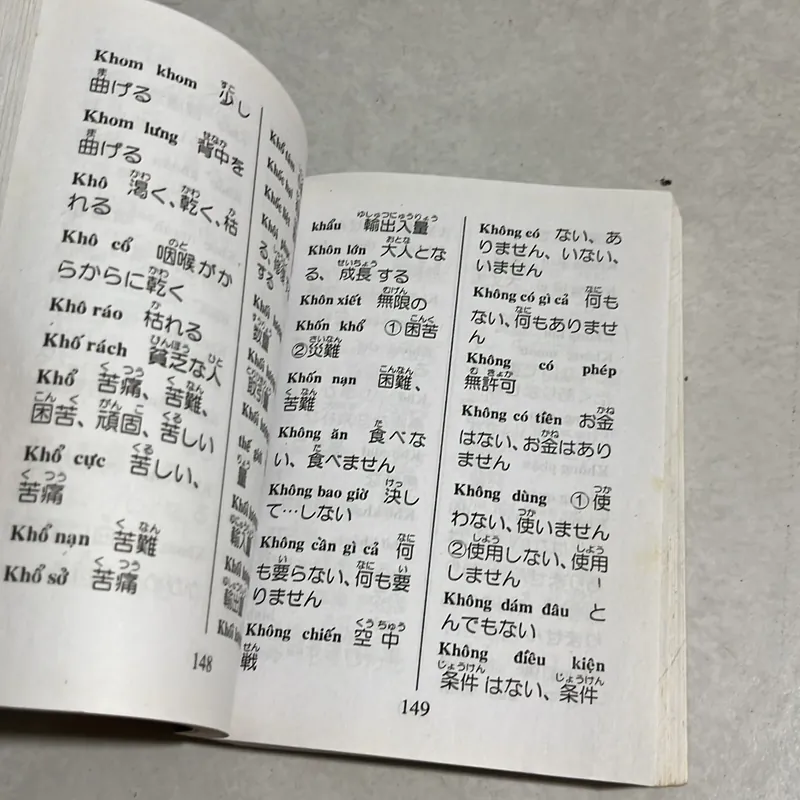 Khom khom 少し
曲げる
Khom lưng 背中を
曲げる
Khô 渇く、乾く、枯
れる
Khô cổ 咽喉がか
らからに乾く
Khô ráo 枯れる
Khố rách 貧乏な人
Khổ 苦痛、苦難、
困苦、頑固、苦しい
Khổ cực 苦しい、
苦痛
Khổ nạn 苦難
Khổ sở 苦痛
148
khẩu 輸出入量
Khôn lớn 大人とな
る、成長する
Khôn xiết 無限の
Khốn khổ ①困苦
②災難
Khốn nạn 困難、
苦難
Không ăn 食べな
い、食べません
Không bao giờ 決し
て…しない
Không cần gì cả 何
も要らない、何も要
りません
Không chiến 空中
戦
Không có ない、あ
りません、いない、
いません
Không có gì cả 何も
ない、何もありませ
ん
Không có phép
無許可
Không có tiền お金
はない、お金はあり
ません
Không dùng ①使
わない、使いません
②使用しない、使用
しません
Không dám đâu と
んでもない
Không điều kiện
条件はない、条件
149